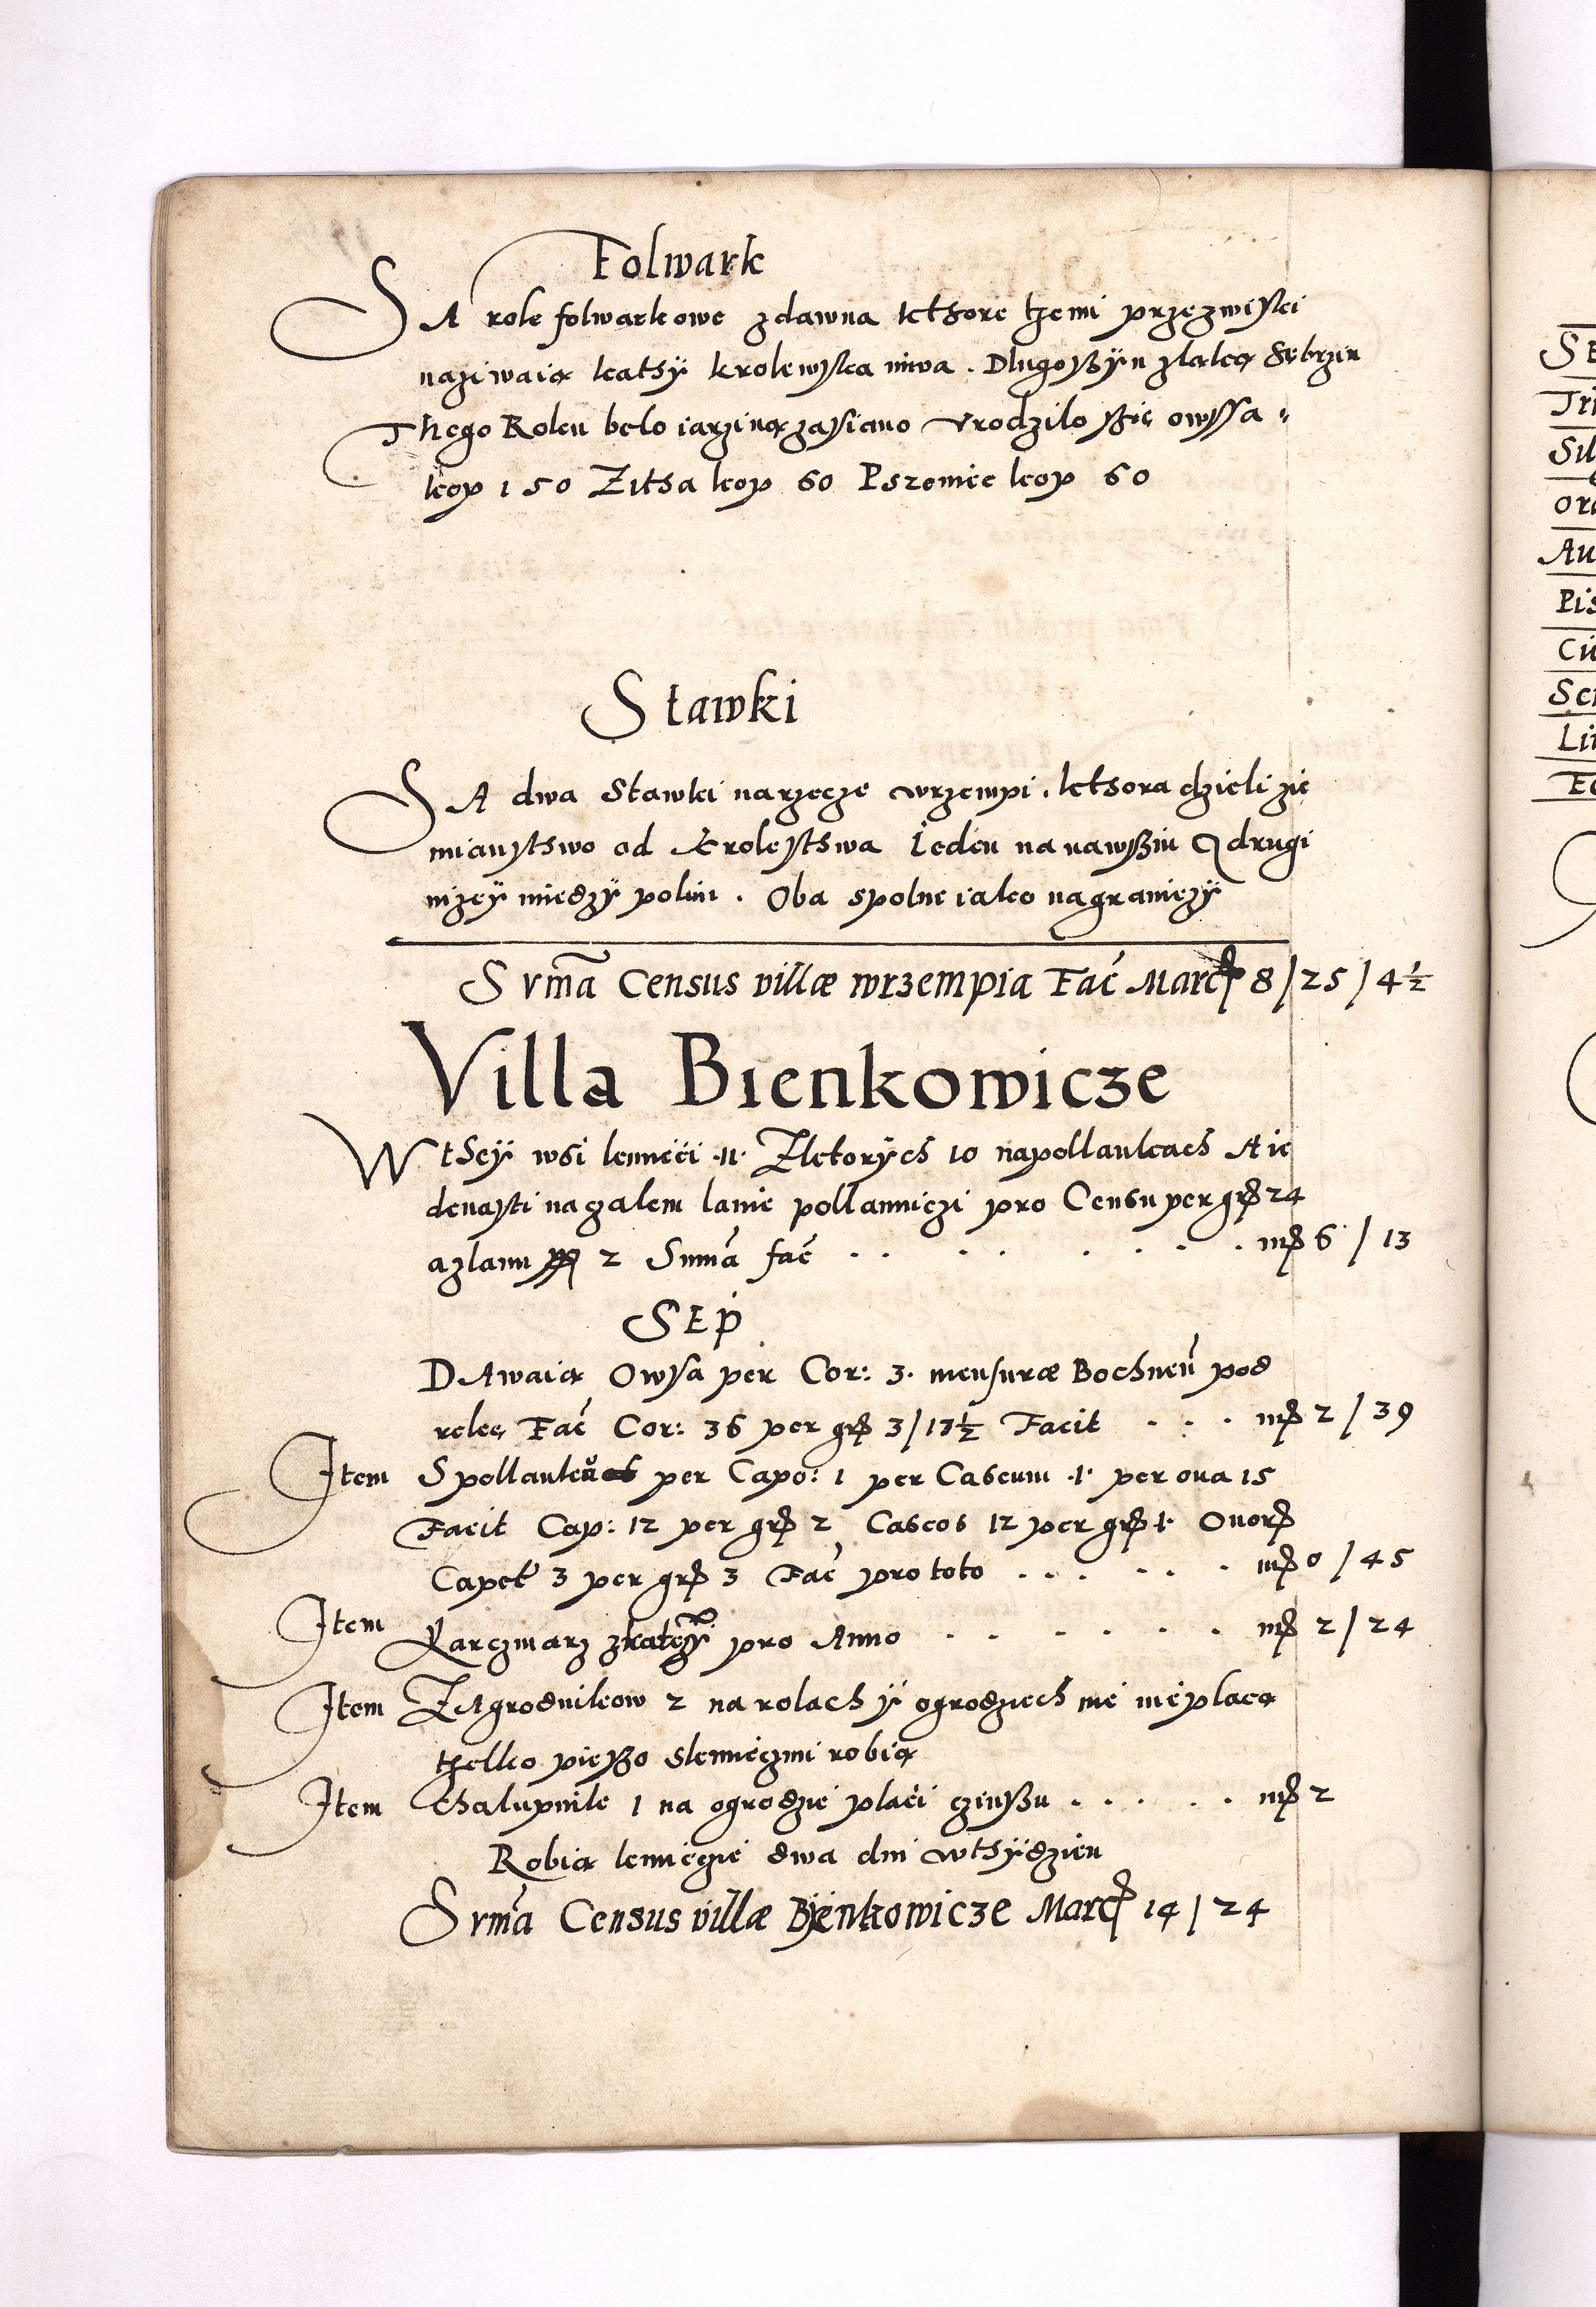 Folwark
SA role folwarkowe zdawna kthore themi przezwiski
naziwaią kąthy krolewska niwa. Dlugossÿn zlaką
Thego Roku belo iarziną zasiano Vrodzilo sşię owssa
kop 150 Zitha kop 60 Pszenice kop 60
Stawki
SA dwa Stawki narzecze wrzempi. kthora dzieli zie
mianstwo od Krolestwa ieden na nawyszÿm drugi
nizeÿ miedzÿ polmi. Oba spolne iako nagraniczÿ
Suma Census villæ wrzempia Fac Marcar 8/25/4½
Villa Bienkowicze
W theÿ wsi kmieci 11 Zktorÿch 10 napollankach A ie
denasti na zalem lanie pollanniczi pro Censu per gr 24
azlanu 2 Suma fac . . . . . . . mr 6/13
SEP
DAwaią Owsa per Cor: 3. mensuræ Bochnen pod
rekę Fac Cor: 36 per gr 3/13½ Facit . . . mr 2/39
Item Spollankow per Capo: 1 per Caseum 1 per oua 15
Facit Cap: 12 per gr 2 Caseos 12 per gr 1 Ouor
Capet 3 per gr 3 Fac pro toto . . . . . . mr 0/45
Item Karczmarz pro Anno . . . . . . mr 2/24
Item ZAgrodnikow 2 na rolach ÿ ogrodziech nie nieplacą
tzelko pieszo skmieczmi robią
Item chalupnik 1 na ogrodzie placi czinszu . . . . . mr 2
Robią kmieczie dwa dni wthÿdzien
Suma Census villæ Bÿenkowicze Marcar 14/24
SE
Tri
Sil
Au
Pis
Lit